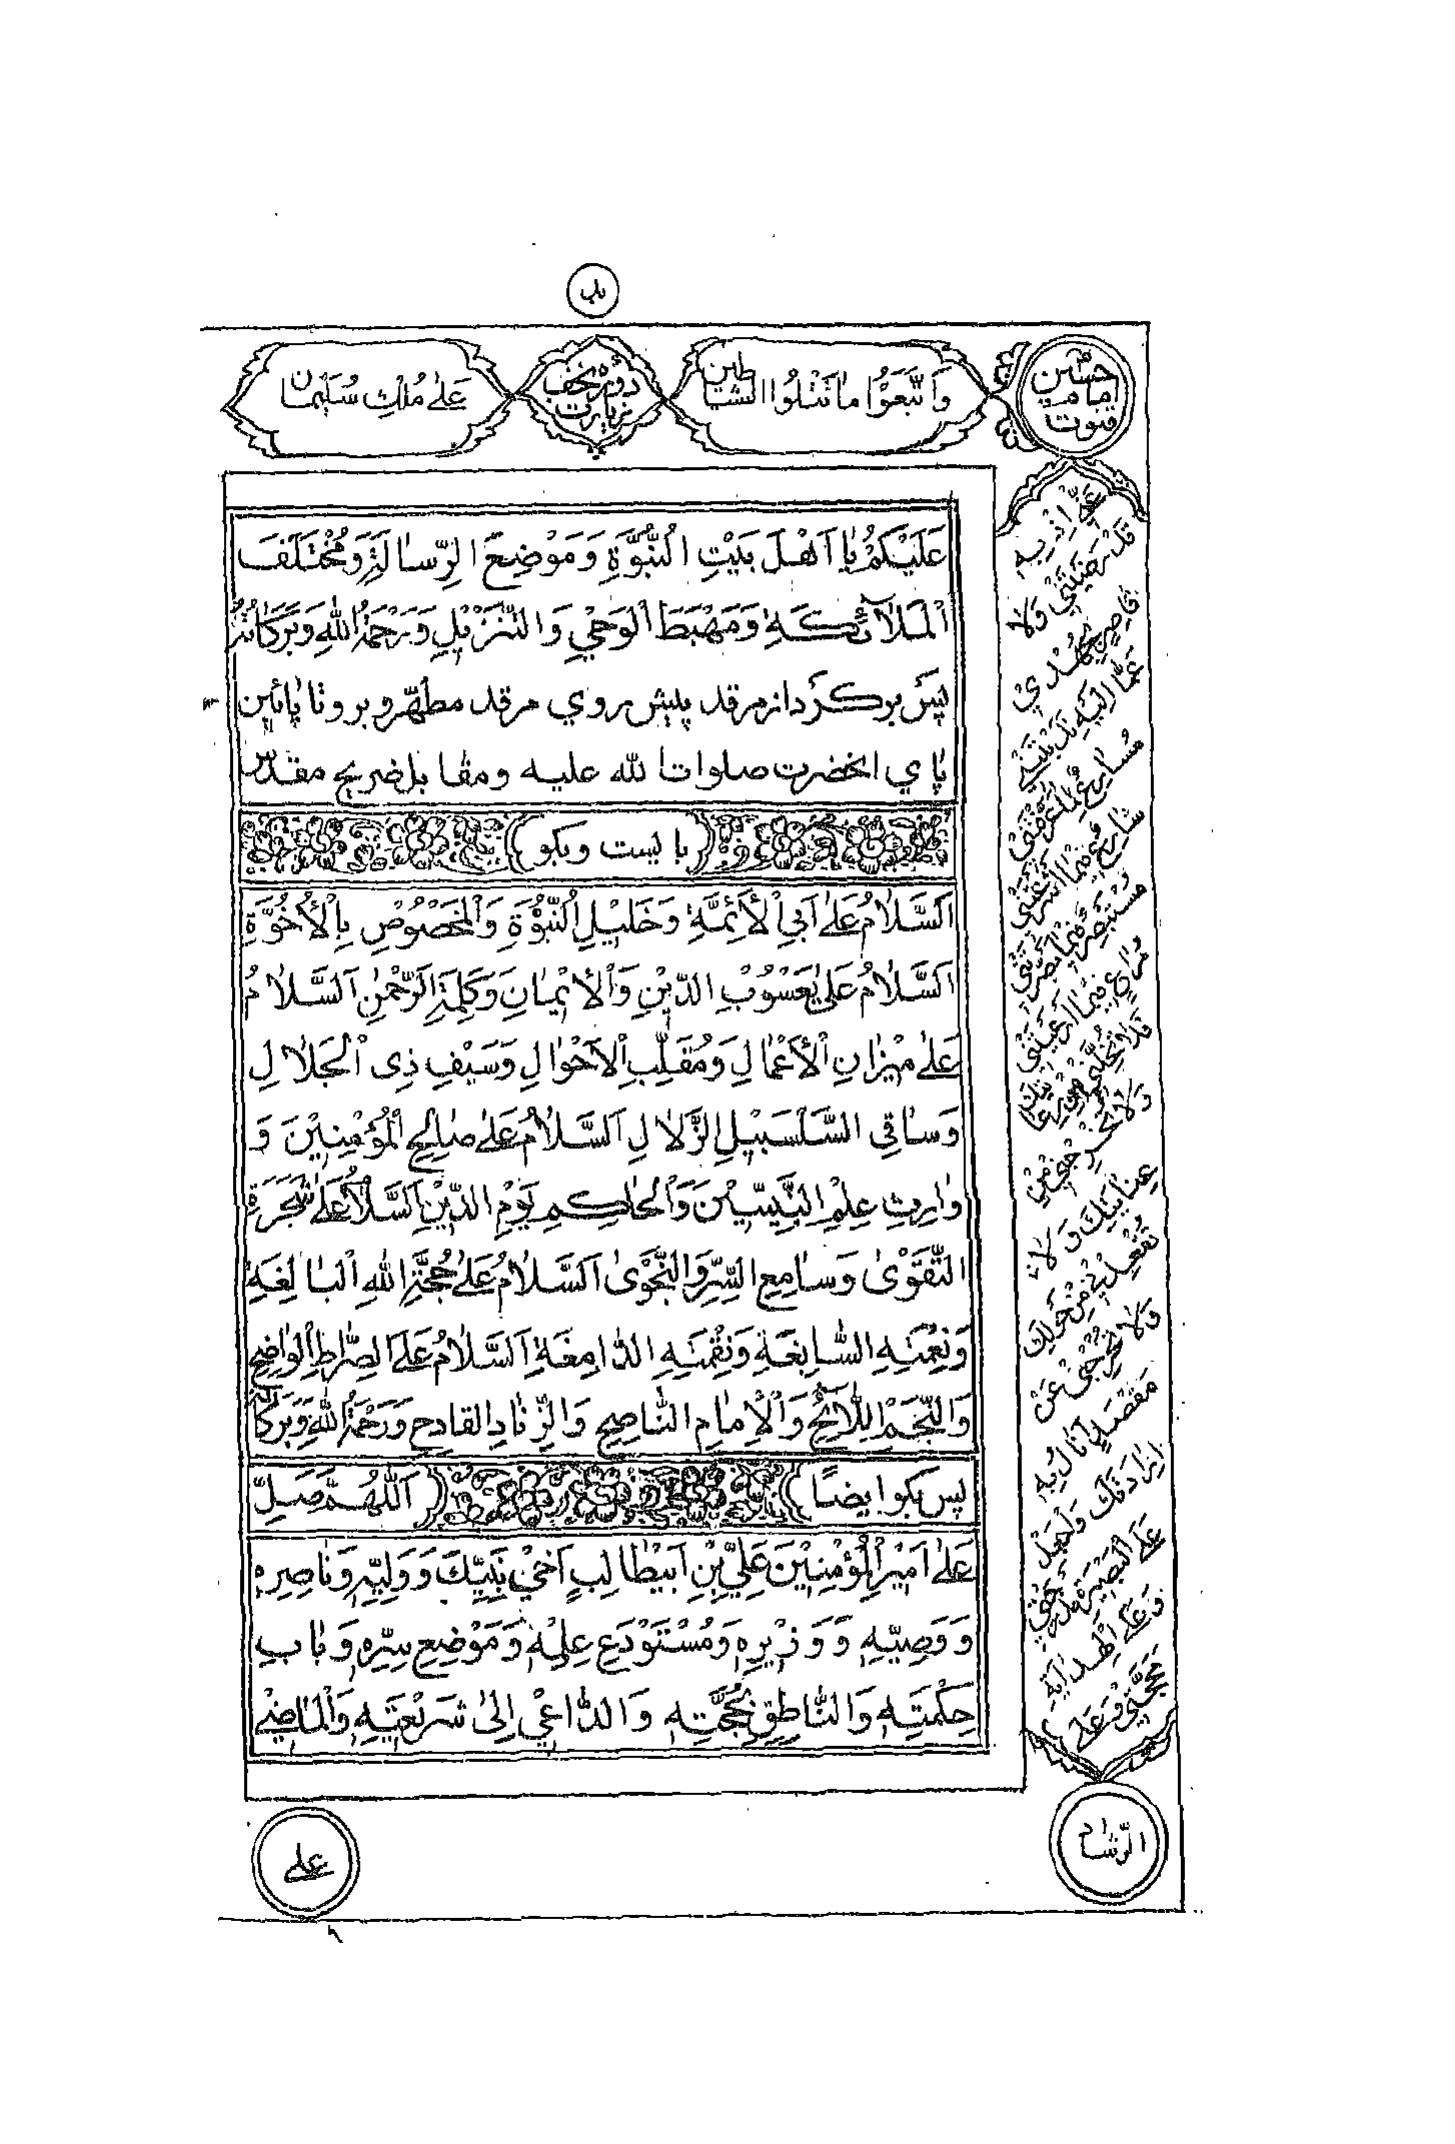 باب
وَاتَّبَعُوا مَا تَتْلُوا الشَّيَاطِينُ
دورهٔ نجف
زیارت
عَلَىٰ مُلْكِ سُلَيْمَانَ
حسین
امام
قنوت
عَلَيْكُمْ يَا اَهْلَ بَيْتِ النُّبُوَّةِ وَمَوْضِعَ الرِّسَالَةِ وَمُخْتَلَفَ
الْمَلَآئِكَةِ وَمَهْبَطَ الْوَحْيِ وَالتَّنْزِيلِ وَرَحْمَةُ اللهِ وَبَرَكَاتُهُ
پس بر گرد از مرقد پیش روی مرقد مطهر و برو تا پائین
پای انحضرت صلوات الله علیه و مقابل ضریح مقدس
بایست و بگو
اَلسَّلَامُ عَلَىٰ اَبِي الْأَئِمَّةِ وَخَلِيلِ النُّبُوَّةِ وَالْمَخْصُوصِ بِالْأُخُوَّةِ
اَلسَّلَامُ عَلَىٰ يَعْسُوبِ الدِّينِ وَالْأِيمَانِ وَكَلِمَةِ الرَّحْمٰنِ اَلسَّلَامُ
عَلَىٰ مِيزَانِ الْأَعْمَالِ وَمُقَلِّبِ الْاَحْوَالِ وَسَيْفِ ذِى الْجَلَالِ
وَسَاقِى السَّلْسَبِيلِ الزُّلَالِ اَلسَّلَامُ عَلَىٰ صَالِحِ الْمُؤْمِنِينَ وَ
وَارِثِ عِلْمِ النَّبِيِّينَ وَالْحَاكِمِ يَوْمِ الدِّينِ اَلسَّلَامُ عَلَىٰ شَجَرَةِ
التَّقْوَىٰ وَسَامِعِ السِّرِّ وَالنَّجْوَىٰ اَلسَّلَامُ عَلَىٰ حُجَّةِ اللهِ الْبَالِغَةِ
وَنِعْمَتِهِ السَّابِغَةِ وَنِقْمَتِهِ الدَّامِغَةِ اَلسَّلَامُ عَلَى الصِّرَاطِ الْوَاضِحِ
وَالنَّجْمِ اللَّائِحِ وَالْاِمَامِ النَّاصِحِ وَالزِّنَادِ الْقَادِحِ وَرَحْمَةُ اللهِ وَبَرَكَاتُهُ
پس بگو ایضًا
اَللّٰهُمَّ صَلِّ
عَلَىٰ اَمِيرِ الْمُؤْمِنِينَ عَلِيِّ بْنِ اَبِيطَالِبٍ اَخِى نَبِيِّكَ وَوَلِيِّهِ وَنَاصِرِهِ
وَوَصِيِّهِ وَوَزِيرِهِ وَمُسْتَوْدَعِ عِلْمِهِ وَمَوْضِعِ سِرِّهِ وَبَابِ
حِكْمَتِهِ وَالنَّاطِقِ بِحُجَّتِهِ وَالدَّاعِى اِلَىٰ شَرِيعَتِهِ وَالْمَاضِى
قَدْ رَضِيتَنِى وَلَا
قَاصِرٍ بِجُهْدِى
عَمَّا اِلَيْهِ نَدَبْتَنِى
مُسَارِعٌ لِمَا عَرَّفْتَنِى
شَارِعٌ فِيمَا اَشْرَعْتَنِى
مُسْتَبْصِرٌ فِيمَا بَصَّرْتَنِى
مُرَاعٍ فِيمَا اَرْعَيْتَنِى
فَلَا تُخْلِنِى مِنْ رِعَايَتِكَ
وَلَا تُخْرِجْنِى مِنْ
عِنَايَتِكَ وَلَا
تُقْعِدْنِى مِنْ حَوْلِكَ
وَلَا تُخْرِجْنِى عَنْ
مَقْصَدٍ اَنَالُ بِهِ
اِرَادَتَكَ وَاجْعَلْ
عَلَى الْبَصِيرَةِ مَدْرَجَتِى
وَعَلَى الْهِدَايَةِ
مَحَجَّتِى وَعَلَىٰ
الرَّشَادِ
علی